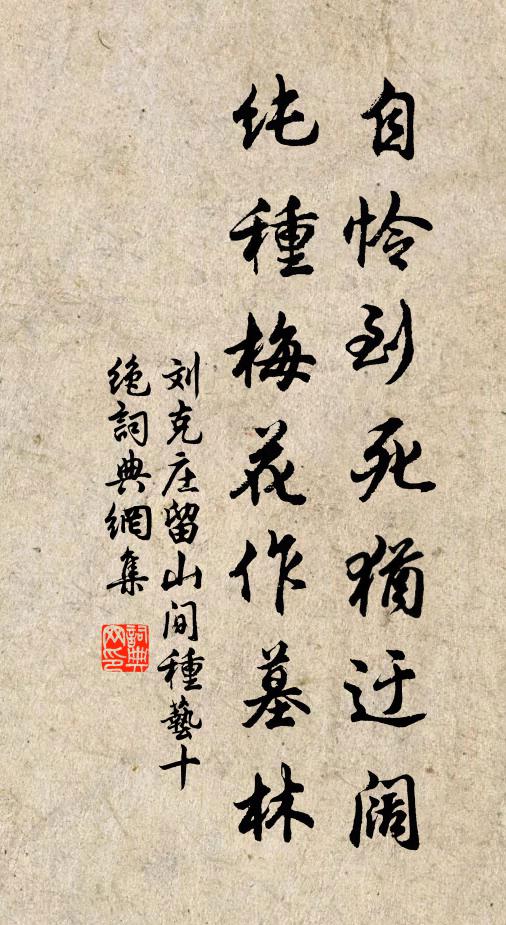 自怜到死犹迂阔
纯種梅花作墓林
刘克庄留山间種藝十
绝詞典網集
詞典
网印